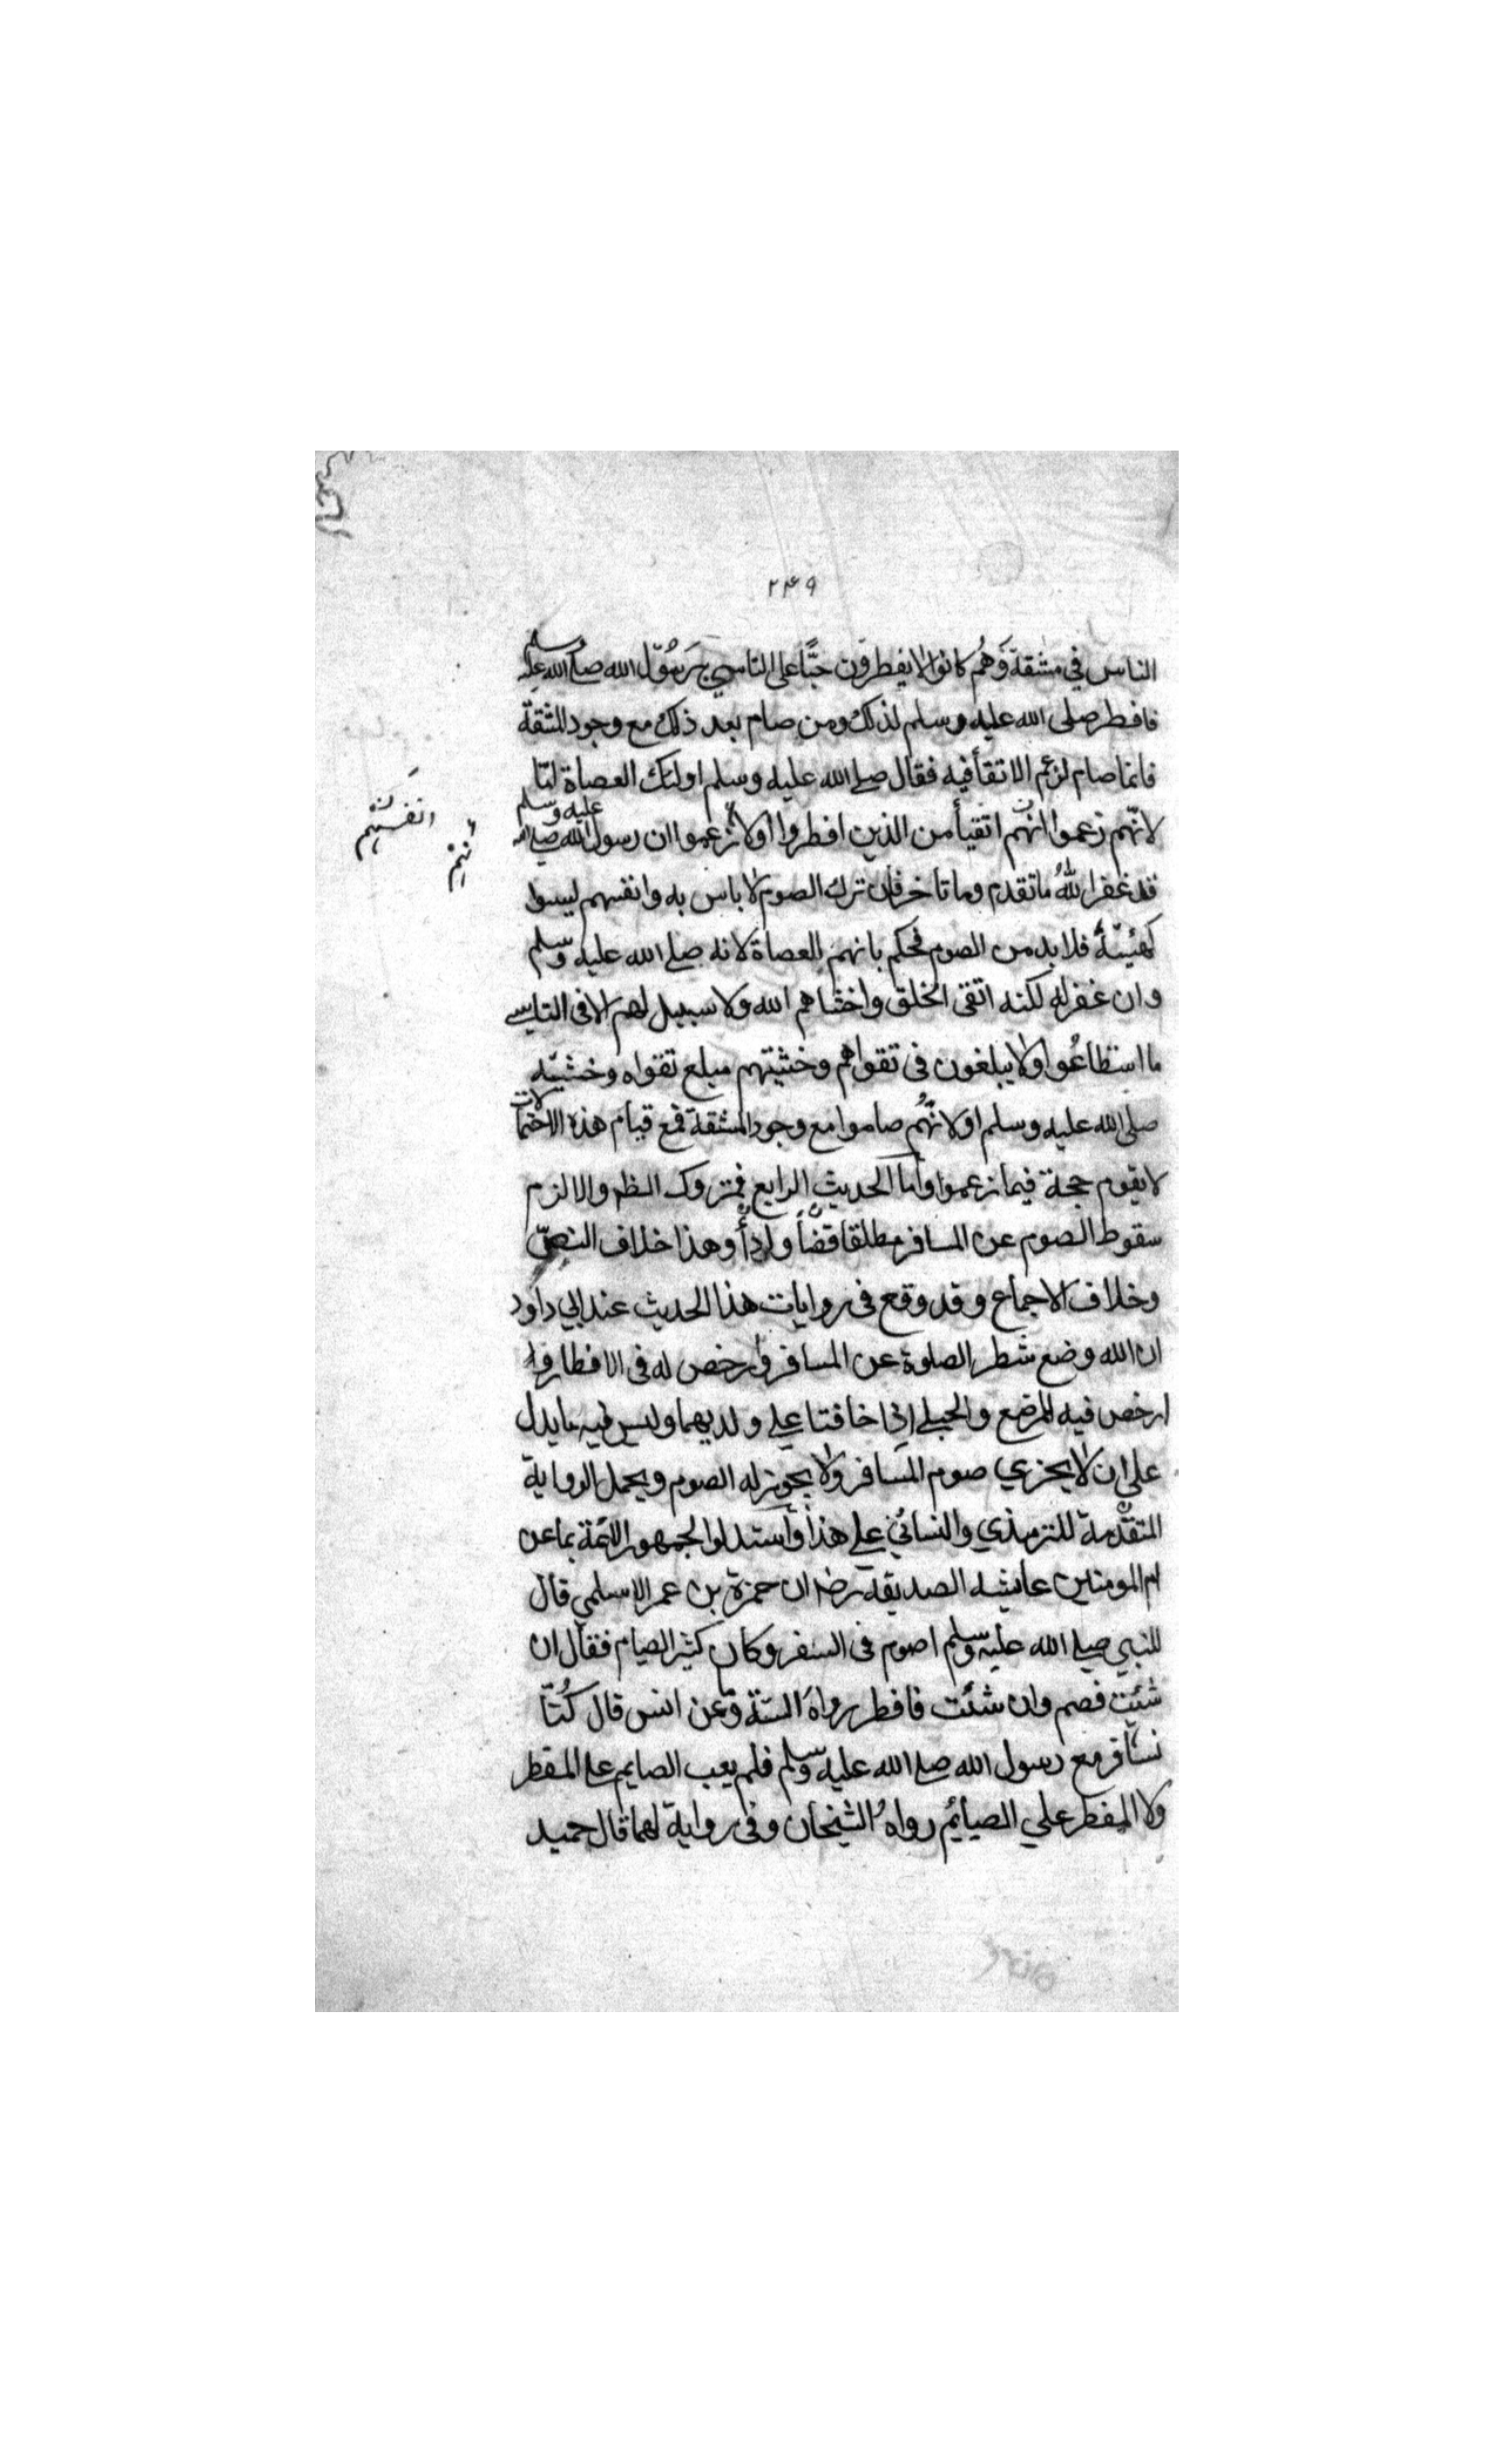 ٢٤٩
الناس في مشقة وهم كانوا لا يفطرون حبًّا على التاسي برسول الله صلى الله عليه وسلم
فافطر صلى الله عليه وسلم لذلك ومن صام بعد ذلك مع وجود المشقة
فانما صام لزعم الاتقأ فيه فقال صلے الله عليه وسلم اولئك العصاة
لانّهم زعموا انهم اتقيأ من الذين افطروا او لانهم زعموا ان رسول الله صلے الله عليه وسلم
انفسهم
قد غفر الله ما تقدم وما تاخر فان ترك الصوم لا باس به وانفسهم ليسوا
كهيئته فلا بد من الصوم فحكم بانهم العصاة لانه صلے الله عليه وسلم
وان غفر له لكنه اتقى الخلق واخشاهم الله ولا سبيل لهم الا فى التاسے
ما استطاعُوا ولا يبلغون فى تقواهم وخشيتهم مبلغ تقواه وخشيته
صلى الله عليه وسلم او لانهم صاموا مع وجود المشقة فمع قيام هذه الاحتمالات
لا يقوم حجة فيما زعموا وأما الحديث الرابع فمتروك الظهر والا لزم
سقوط الصوم عن المسافر مطلقا قضأ وادأ وهذا خلاف النص
وخلاف الاجماع وقد وقع فى روايات هذا الحديث عند ابي داود
ان الله وضع شطر الصلوة عن المسافر وارخص له فى الافطار و
ارخص فيه للمرضع والحبلے اذا خافتا علے ولديهما وليس فيه ما يدل
على ان لا يجزي صوم المسافر ولا يجوز له الصوم ويحمل الرواية
المتقدّمة للترمذي والنسائي علے هذا واستدلوا لجمهور الائمة بما عن
ام المومنين عايشه الصديقة رضه ان حمزة بن عمر الاسلمي قال
للنبي صلے الله عليه وسلم اصوم فى السفر وكان كثير الصيام فقال ان
شئت فصم وان شئت فافطر رواه الستة وعن انس قال كُنّا
نسافر مع رسول الله صلے الله عليه وسلم فلم يعب الصايم على المفطر
ولا المفطر علي الصيائم رواه الشيخان وفى رواية لهما قال حميد